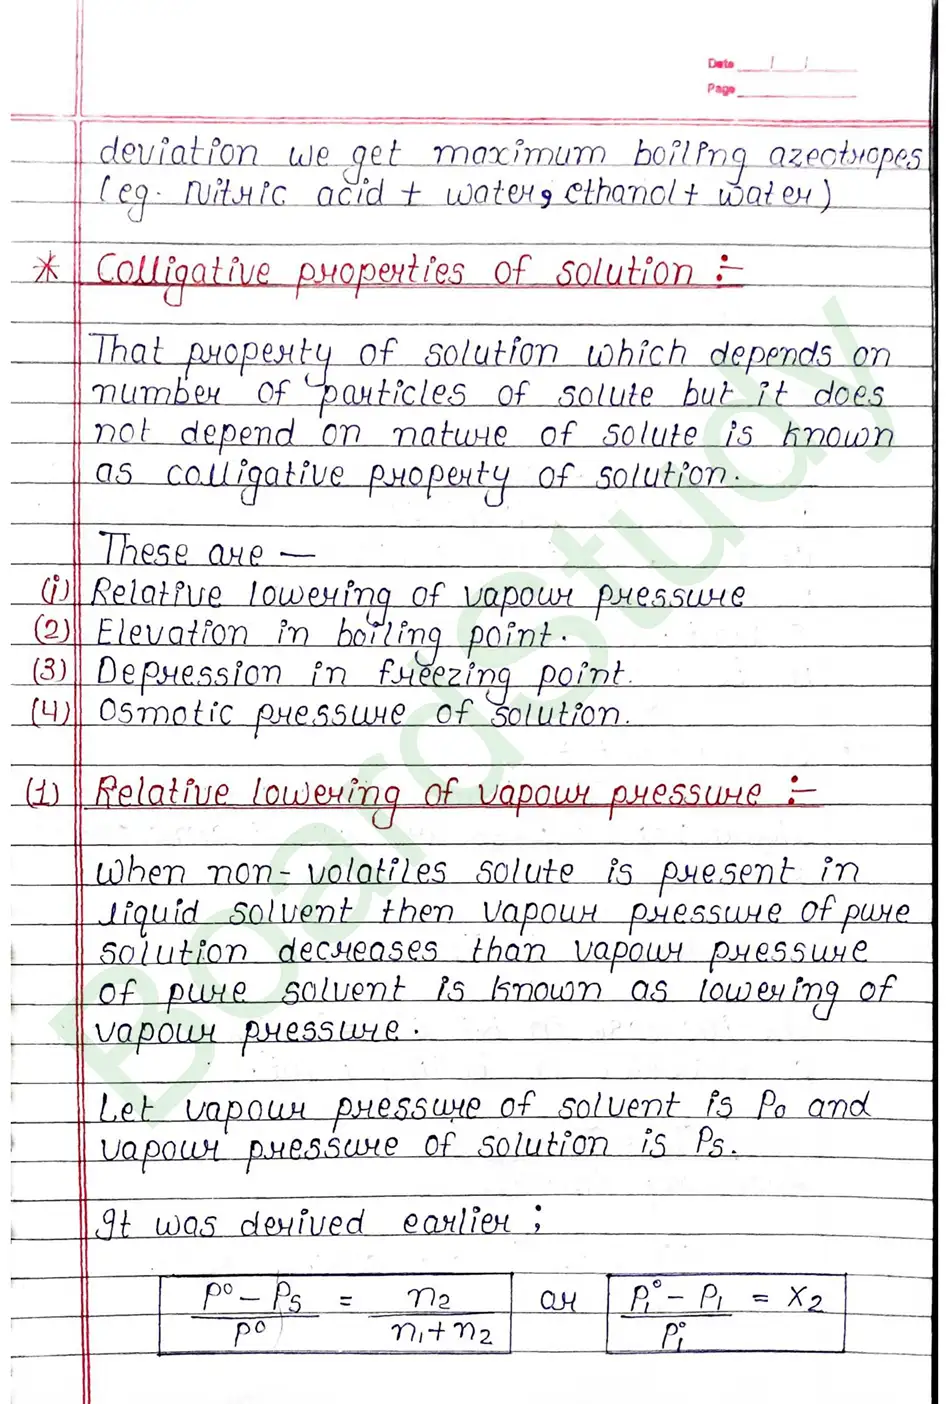 Date / /
Page
deviation we get maximum boiling azeotropes
(eg. Nitric acid + water, ethanol + water)
* Colligative properties of solution :-
That property of solution which depends on
number of particles of solute but it does
not depend on nature of solute is known
as colligative property of solution.
These are —
(i) Relative lowering of vapour pressure
(2) Elevation in boiling point.
(3) Depression in freezing point.
(4) Osmotic pressure of solution.
(1) Relative lowering of vapour pressure :-
When non-volatiles solute is present in
liquid solvent then vapour pressure of pure
solution decreases than vapour pressure
of pure solvent is known as lowering of
vapour pressure.
Let vapour pressure of solvent is P₀ and
vapour pressure of solution is Ps.
It was derived earlier ;
P⁰ - Ps / P⁰ = n₂ / n₁ + n₂ or P₁° - P₁ / P₁° = X₂
BoardStudy